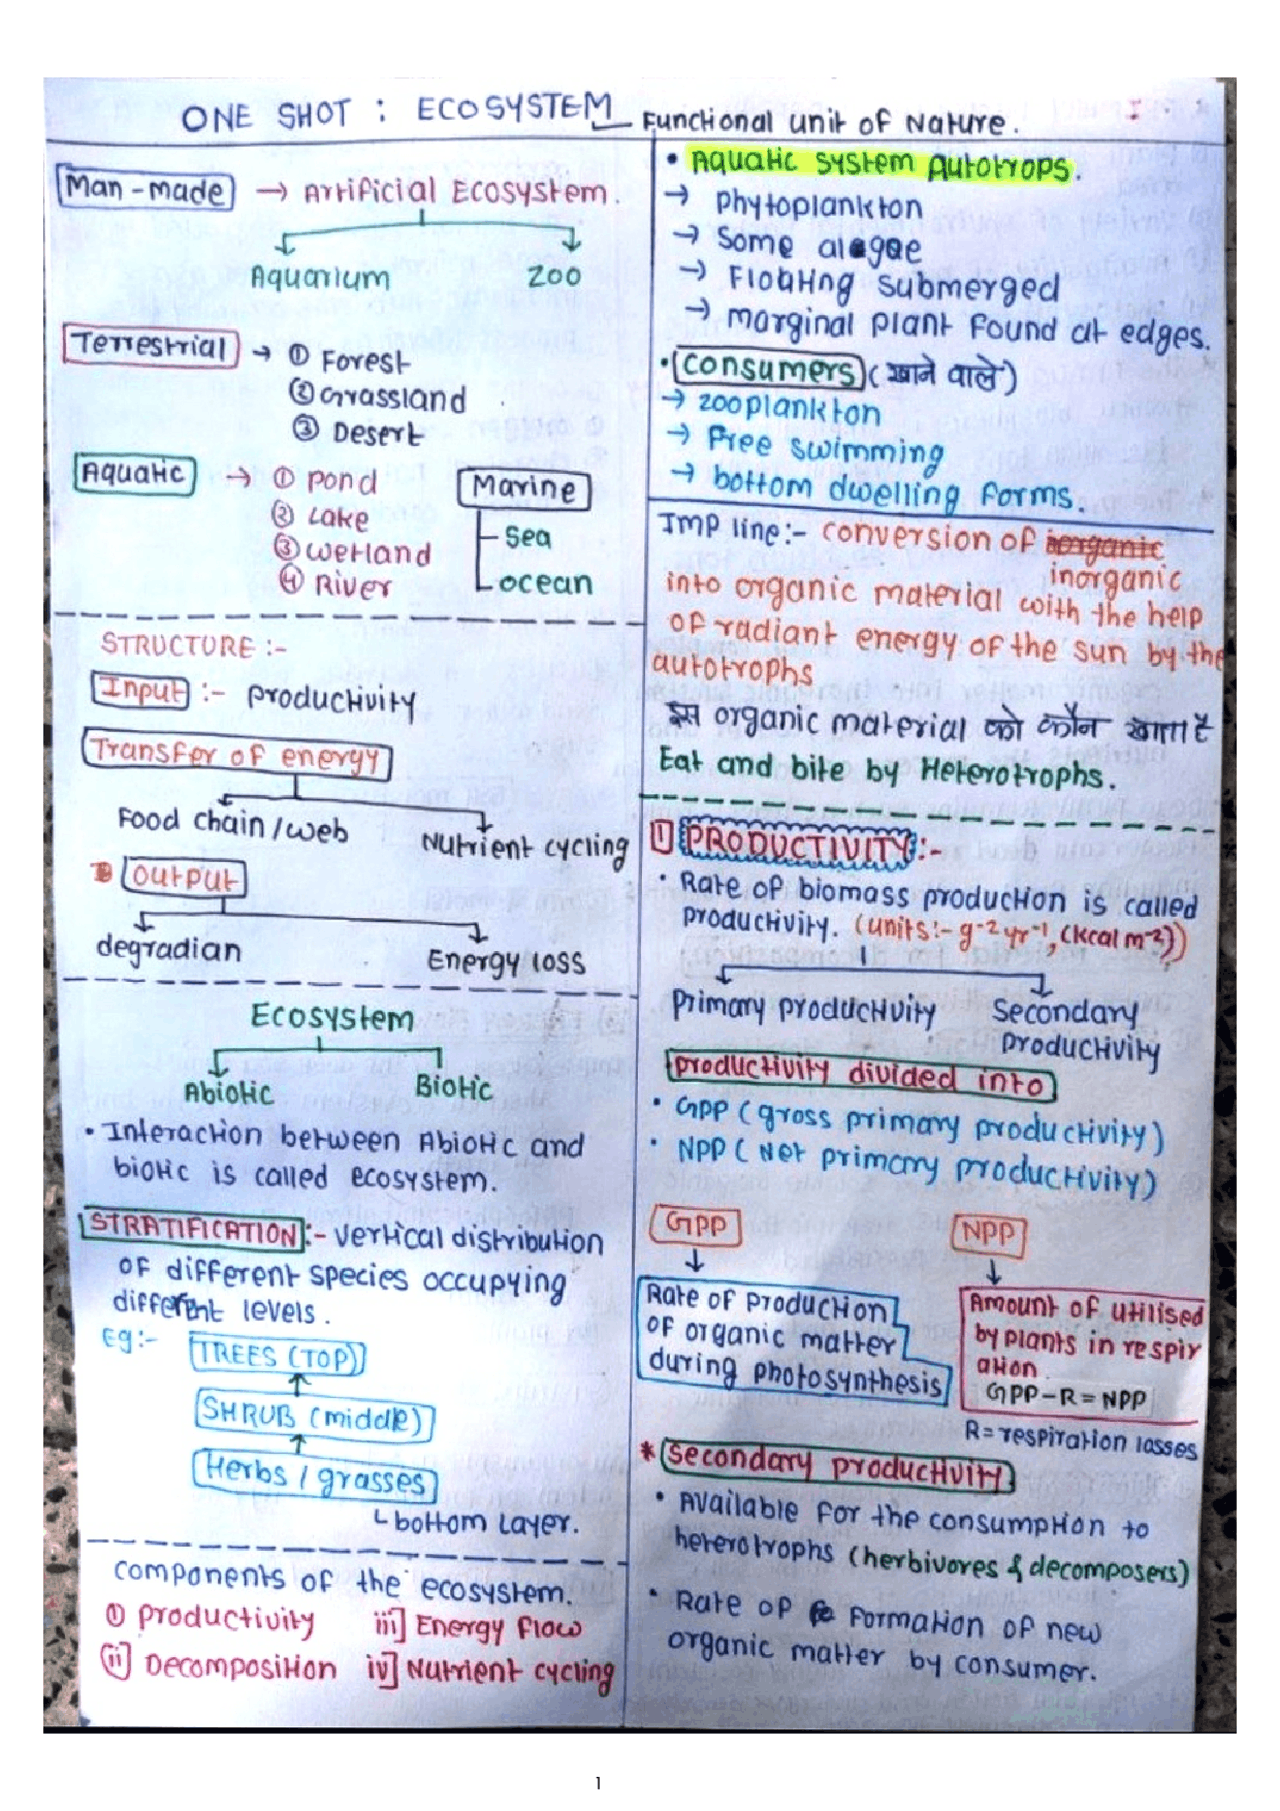 ONE SHOT : ECOSYSTEM
Functional unit of Nature.
Man-made → Artificial Ecosystem.
Aquarium
ZOO
Terrestrial → ① Forest
② Grassland
③ Desert
Aquatic → ① Pond
② Lake
③ Wetland
④ River
Marine
Sea
ocean
STRUCTURE :-
Input :- productivity
Transfer of energy
Food chain/web
Nutrient cycling
output
degradian
Energy loss
Ecosystem
Abiotic
Biotic
• Interaction between Abiotic and
biotic is called ecosystem.
STRATIFICATION :- vertical distribution
of different species occupying
different levels.
Eg:-
TREES (TOP)
SHRUB (middle)
Herbs / grasses
bottom Layer.
components of the ecosystem.
① productivity
iii] Energy flow
ii] Decomposition
iv] Nutrient cycling
• Aquatic system Autotrops.
→ phytoplankton
→ Some alogae
→ Floating submerged
→ marginal plant found at edges.
• consumers (खाने वाले)
→ zooplankton
→ Free swimming
→ bottom dwelling forms.
IMP line:- conversion of inorganic
inorganic
into organic material with the help
of radiant energy of the sun by the
autotrophs
इस organic material को कौन खाता है
Eat and bite by Heterotrophs.
1] PRODUCTIVITY :-
• Rate of biomass production is called
productivity. (units:- g⁻² yr⁻¹, (Kcal m⁻²))
primary productivity
Secondary
productivity
productivity divided into
• GPP (gross primary productivity)
• NPP (Net primary productivity)
GPP
NPP
Rate of production
of organic matter
during photosynthesis
Amount of utilised
by plants in respir
ation
GPP – R = NPP
R = respiration losses
* Secondary productivity
• Available for the consumption to
heterotrophs (herbivores & decomposers)
• Rate of formation of new
organic matter by consumer.
1